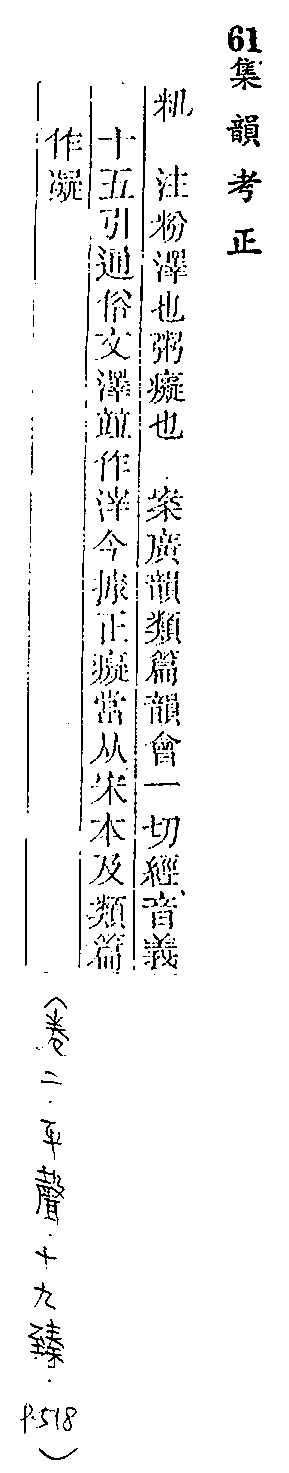 61集韻考正
籸 注粉澤也粥癡也 案廣韻類篇韻會一切經音義
十五引通俗文澤竝作滓今據正癡當从宋本及類篇
作凝
(卷二.平聲.十九臻.P.518)